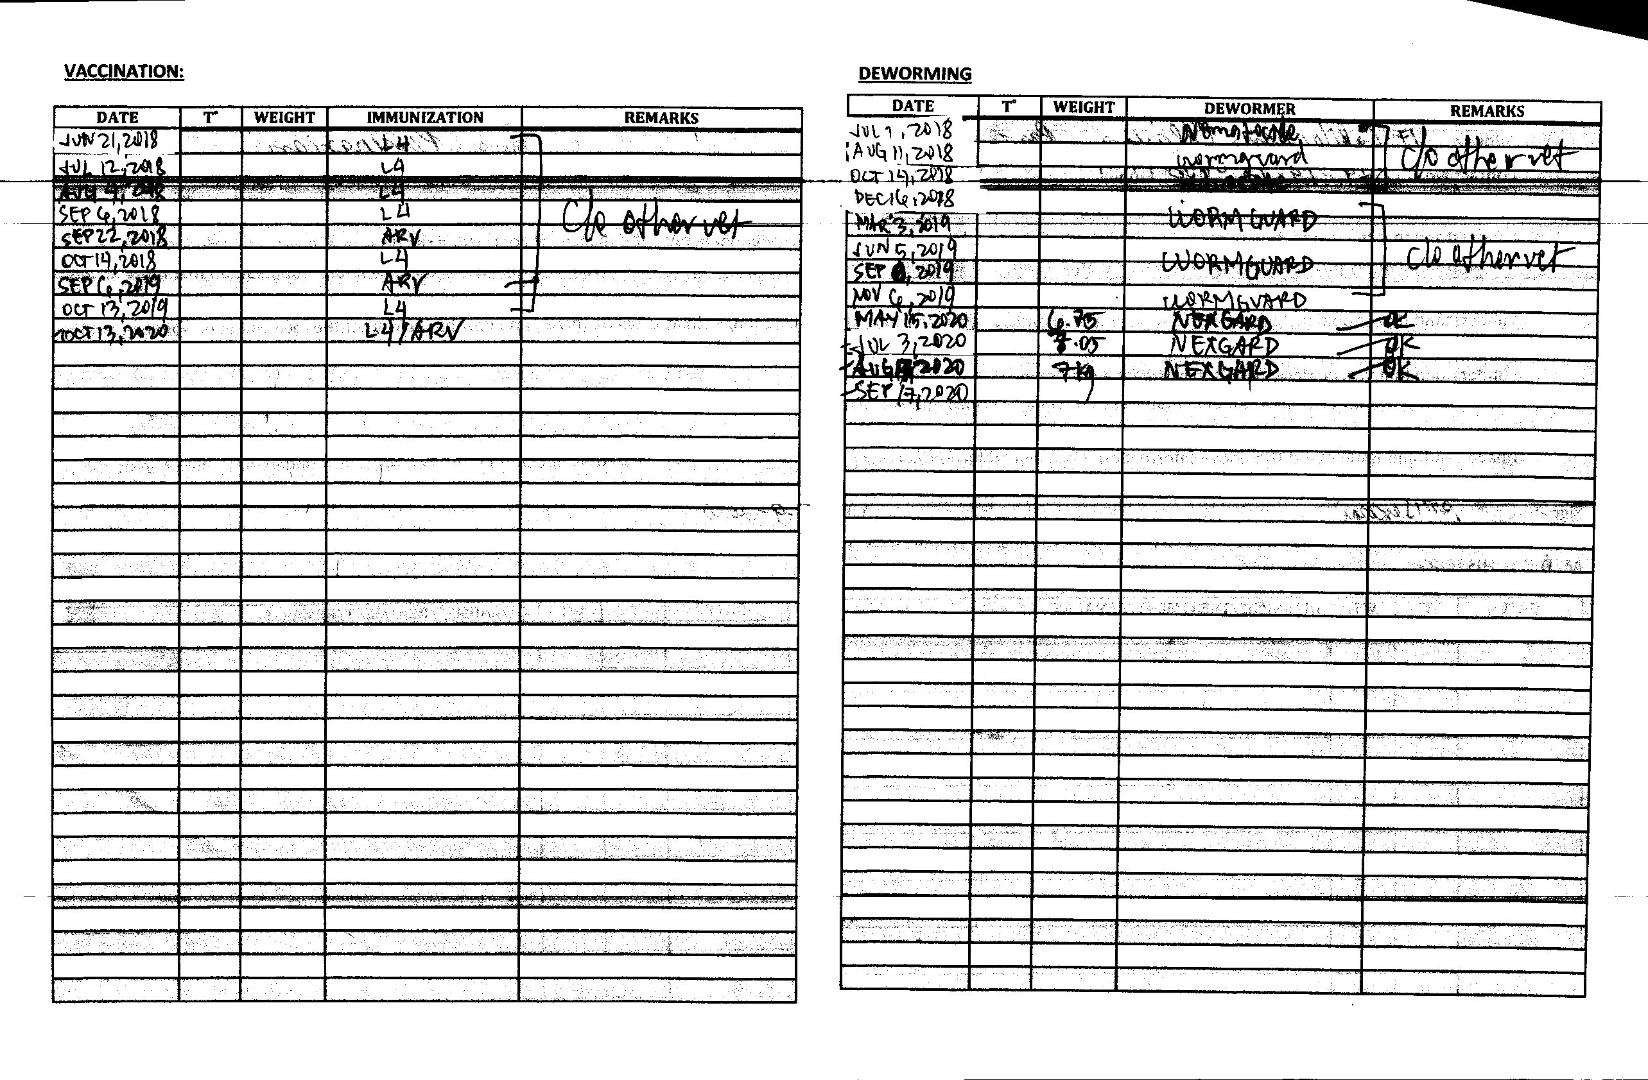 VACCINATION:
DATE T° WEIGHT IMMUNIZATION REMARKS
JUN 21, 2018 L4
JUL 12, 2018 L4
AUG 9, 2018 L4
SEP 6, 2018 L4 C/o other vet
SEP 22, 2018 ARV
OCT 14, 2018 L4
SEP 6, 2019 ARV
OCT 13, 2019 L4
OCT 13, 2020 L4/ARV
DEWORMING
DATE T° WEIGHT DEWORMER REMARKS
JUL 1, 2018 Nematocide
AUG 11, 2018 wormguard C/o other vet
OCT 14, 2018
DEC 16, 2018
MAR 3, 2019 WORMGUARD
JUN 5, 2019 C/o other vet
SEP 2019 WORMGUARD
NOV 6, 2019 WORMGUARD
MAY 15, 2020 6.75 NEXGARD OK
JUL 3, 2020 7.05 NEXGARD OK
AUG 2020 7kg NEXGARD OK
SEP 17, 2020